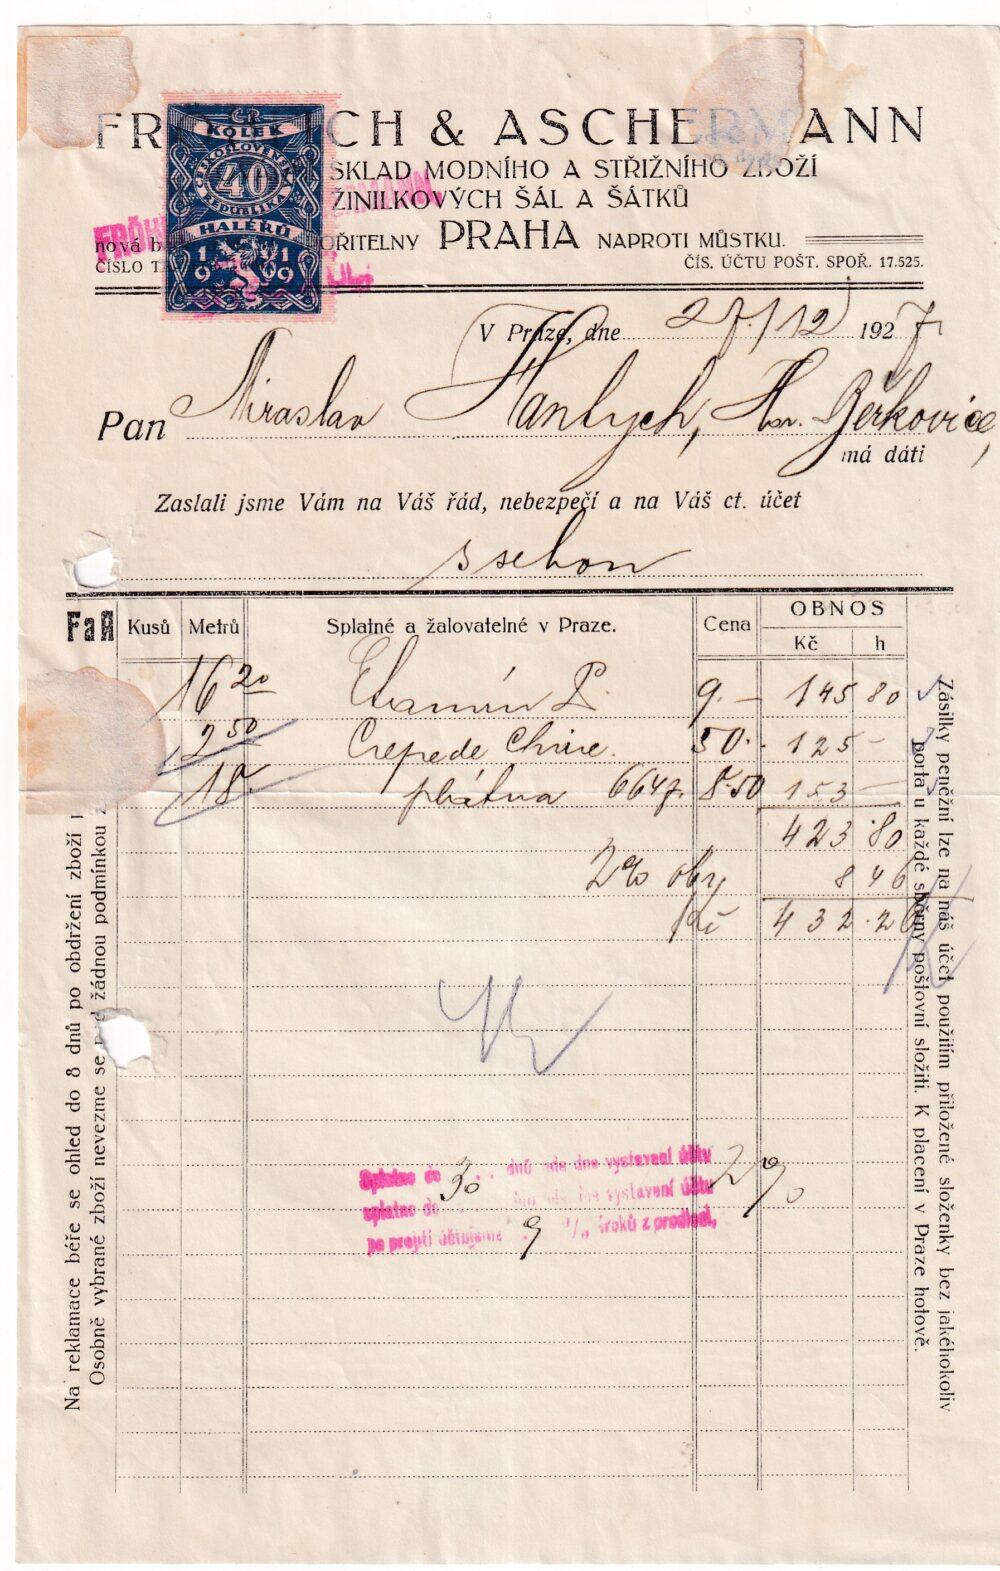 FR CH & ASCHERMANN
SKLAD MODNÍHO A STŘIŽNÍHO ZBOŽÍ
ŽINILKOVÝCH ŠÁL A ŠÁTKŮ
nová b OŘITELNY PRAHA NAPROTI MŮSTKU.
ČÍSLO T ČÍS. ÚČTU POŠT. SPOŘ. 17.525.
ČR
KOLEK
ČESKOSLOVENSKÁ
40
REPUBLIKA
HALÉŘŮ
1919
FRÖH ERMANN
V Praze, dne 27./12 1927
Pan Miroslav Hantych, Hor. Beřkovice,
má dáti
Zaslali jsme Vám na Váš řád, nebezpečí a na Váš ct. účet
FaA Kusů Metrů Splatné a žalovatelné v Praze. Cena OBNOS
Kč h
16 20 Etamin P. 9.— 145 80
2 50 Crepe de Chine. 50.— 125 —
18. plátna 664 8.50 153 —
423.80
2% obr 8 46
Kč 432.26
Splatno do 30 dnů ode dne vystavení účtu 2%
splatno do dnů ode dne vystavení účtu
po projití účtujeme 9 % úroků z prodlení,
Na reklamace béře se ohled do 8 dnů po obdržení zboží
Osobně vybrané zboží nevezme se žádnou podmínkou
Zásilky peněžní lze na náš účet použitím přiložené složenky bez jakéhokoliv
porta u každé sběrny poštovní složiti. K placení v Praze hotově.